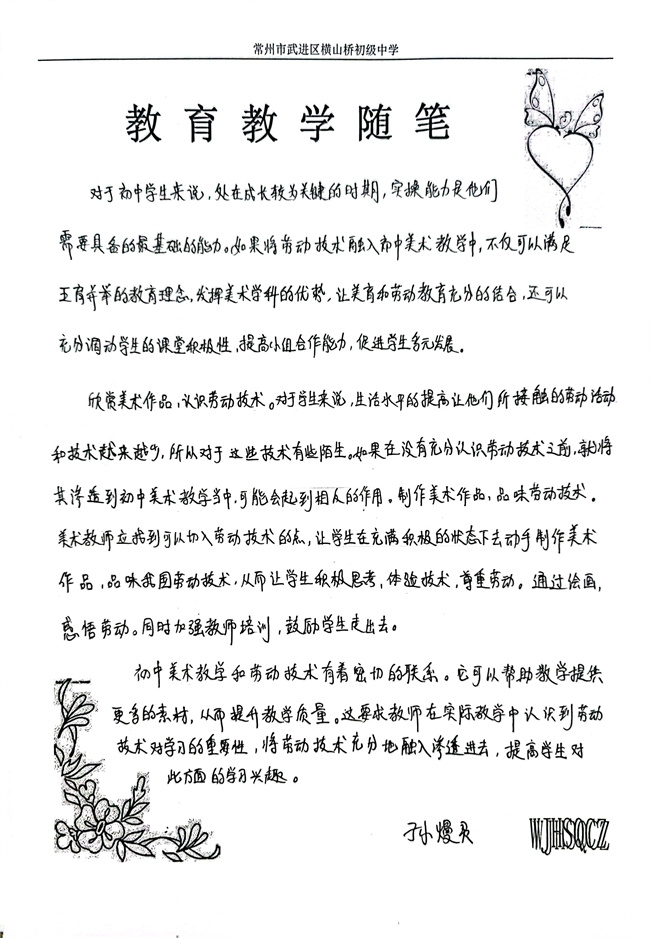 常州市武进区横山桥初级中学
教育教学随笔
对于初中学生来说,处在成长较为关键的时期,实操能力是他们
需要具备的最基础的能力。如果将劳动技术融入初中美术教学中,不仅可以满足
五育并举的教育理念,发挥美术学科的优势,让美育和劳动教育充分的结合,还可以
充分调动学生的课堂积极性,提高小组合作能力,促进学生多元发展。
欣赏美术作品,认识劳动技术。对于学生来说,生活水平的提高让他们所接触的劳动活动
和技术越来越少,所以对于这些技术有些陌生。如果在没有充分认识劳动技术之前,就将
其渗透到初中美术教学当中,可能会起到相反的作用。制作美术作品,品味劳动技术。
美术教师应找到可以切入劳动技术的点,让学生在充满积极的状态下去动手制作美术
作品,品味我国劳动技术,从而让学生积极思考,体验技术,尊重劳动。通过绘画,
感悟劳动。同时加强教师培训,鼓励学生走出去。
初中美术教学和劳动技术有着密切的联系。它可以帮助教学提供
更多的素材,从而提升教学质量。这要求教师在实际教学中认识到劳动
技术对学习的重要性,将劳动技术充分地融入渗透进去,提高学生对
此方面的学习兴趣。
孙嫚
WJHSQCZ